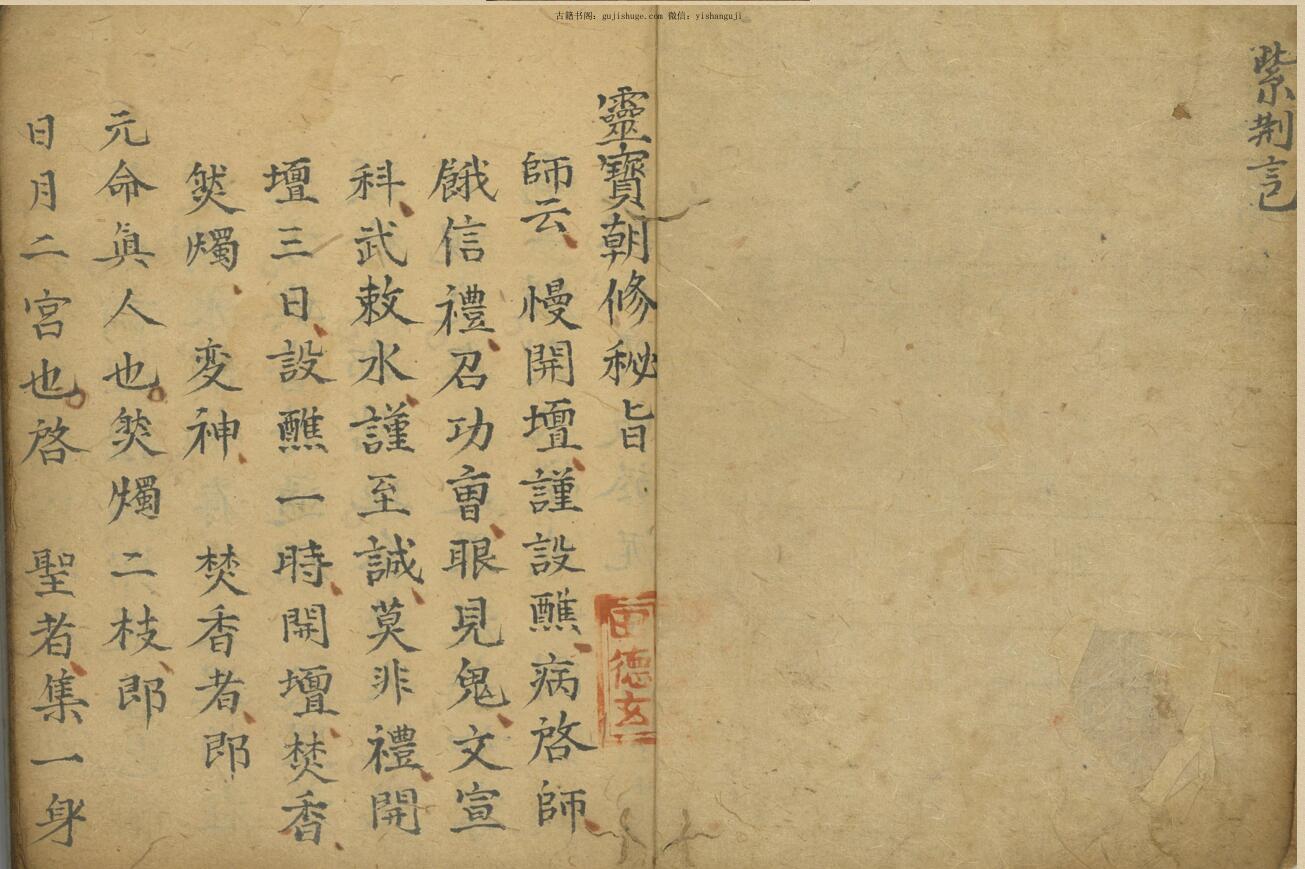 古籍书阁：gujishuge.com 微信：yishanguji
紫荆言
靈寶朝修秘旨
師云慢開壇謹設醮病啓師
餓信禮召功曺眼見鬼文宣
科武敕水謹至誠莫非禮開
壇三日設醮一時開壇焚香
然燭 变神 焚香者即
元命眞人也然燭二枝即
日月二宮也啓 聖者集一身
德玄